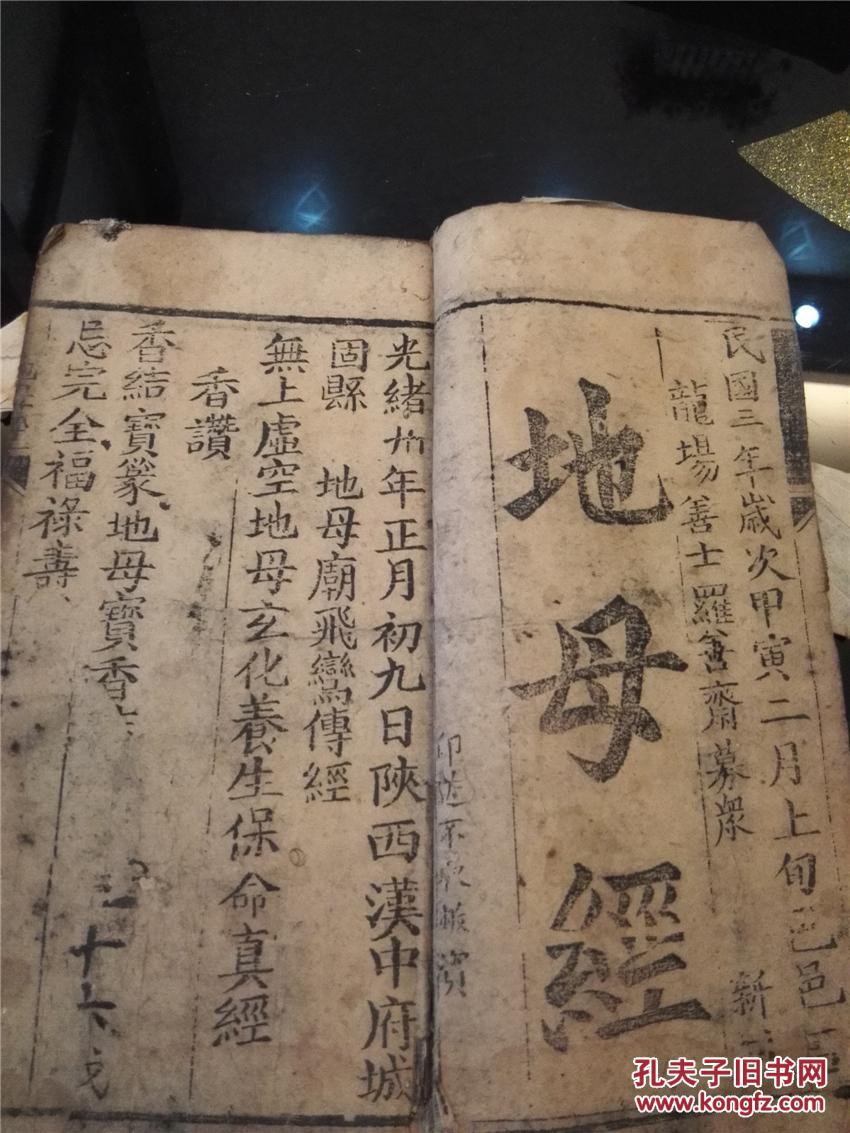 民國三年歲次甲寅二月上旬邑邑
龍場善士羅善齋募眾 新
地母經
印送不取
光緒卅年正月初九日陝西漢中府城
固縣 地母廟飛鸞傳經
無上虛空地母玄化養生保命真經
香讚
香結寶篆、地母寶香
忌完全、福祿壽、
十六
孔夫子旧书网
www.kongfz.com